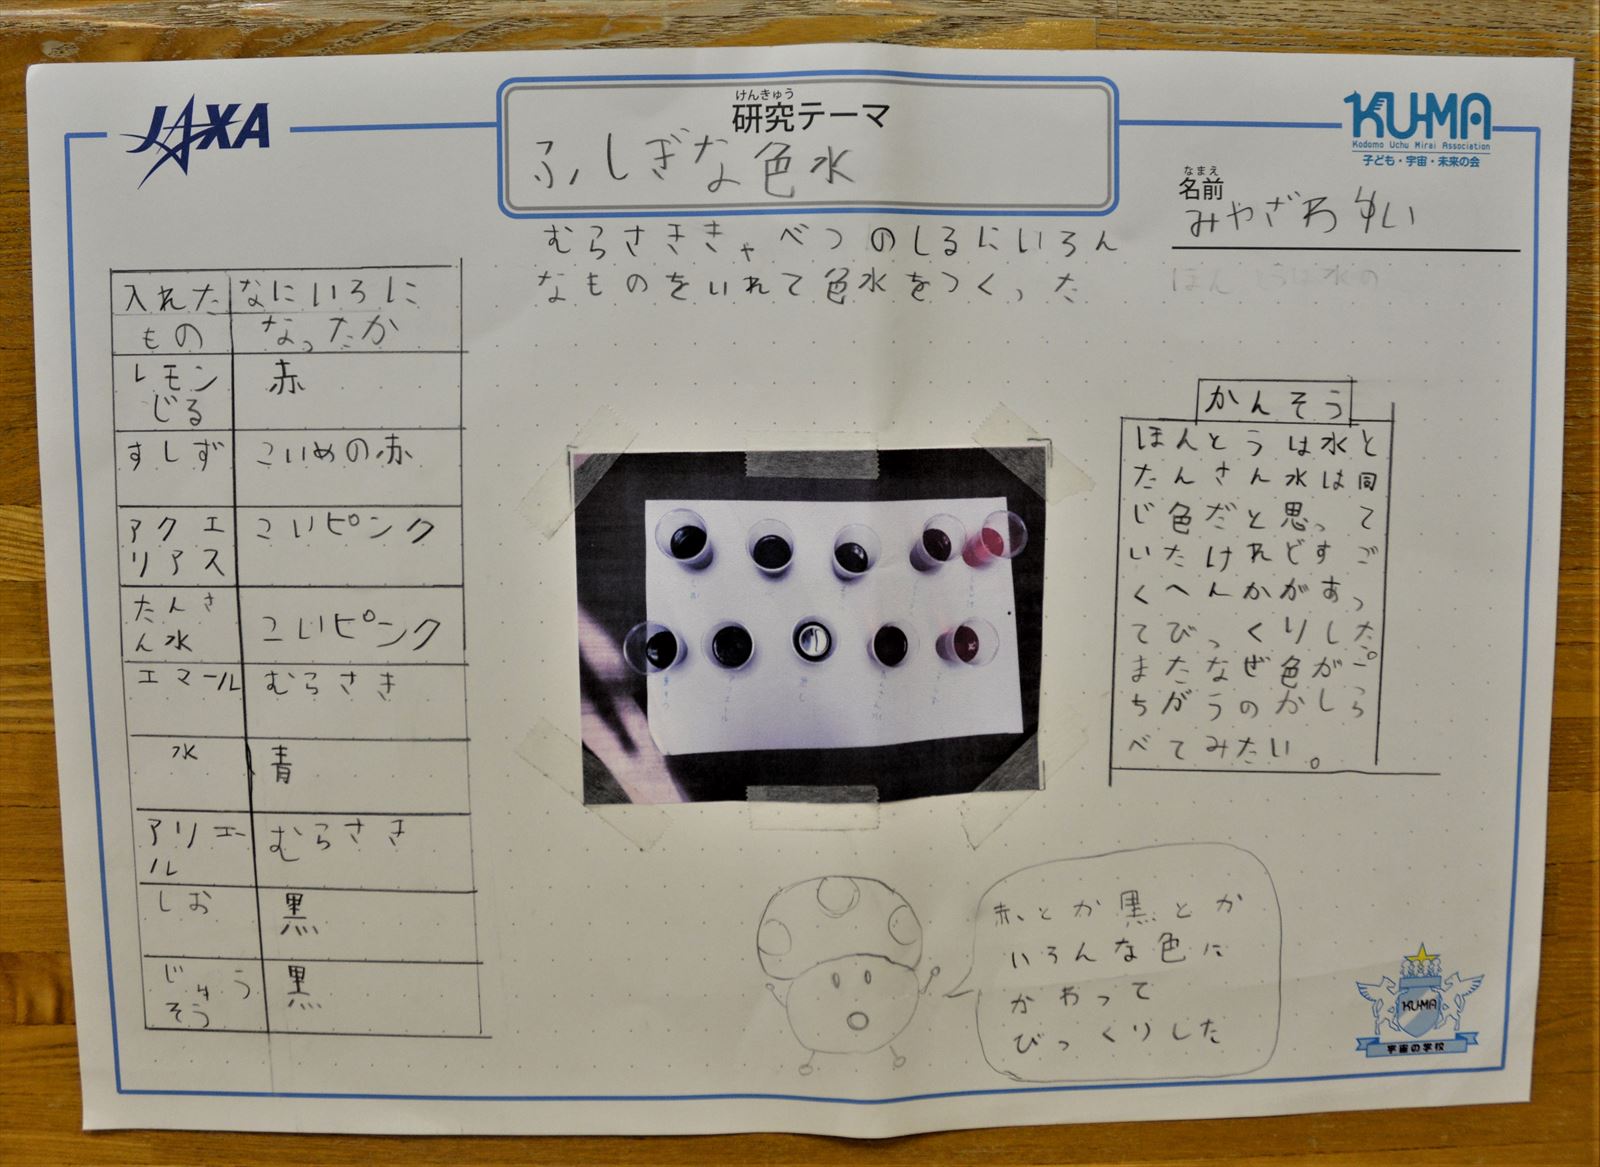 JAXA
けんきゅう
研究テーマ
ふしぎな色水
KU-MA
Kodomo Uchu Mirai Association
子ども・宇宙・未来の会
なまえ
名前
みやざわゆい
むらさききゃべつのしるにいろん
なものをいれて色水をつくった
入れた なにいろに
もの なったか
レモン 赤
じる
すしず こいめの赤
アクエ こいピンク
リアス
たんさ
ん水 こいピンク
エマール むらさき
水 青
アリエー むらさき
ル
しお 黒
じゅう 黒
そう
かんそう
ほんとうは水と
たんさん水は同
じ色だと思って
いたけれどすご
くへんかがあっ
てびっくりした。
またなぜ色が
ちがうのかしら
べてみたい。
赤とか黒とか
いろんな色に
かわって
びっくりした
KU-MA
宇宙の学校